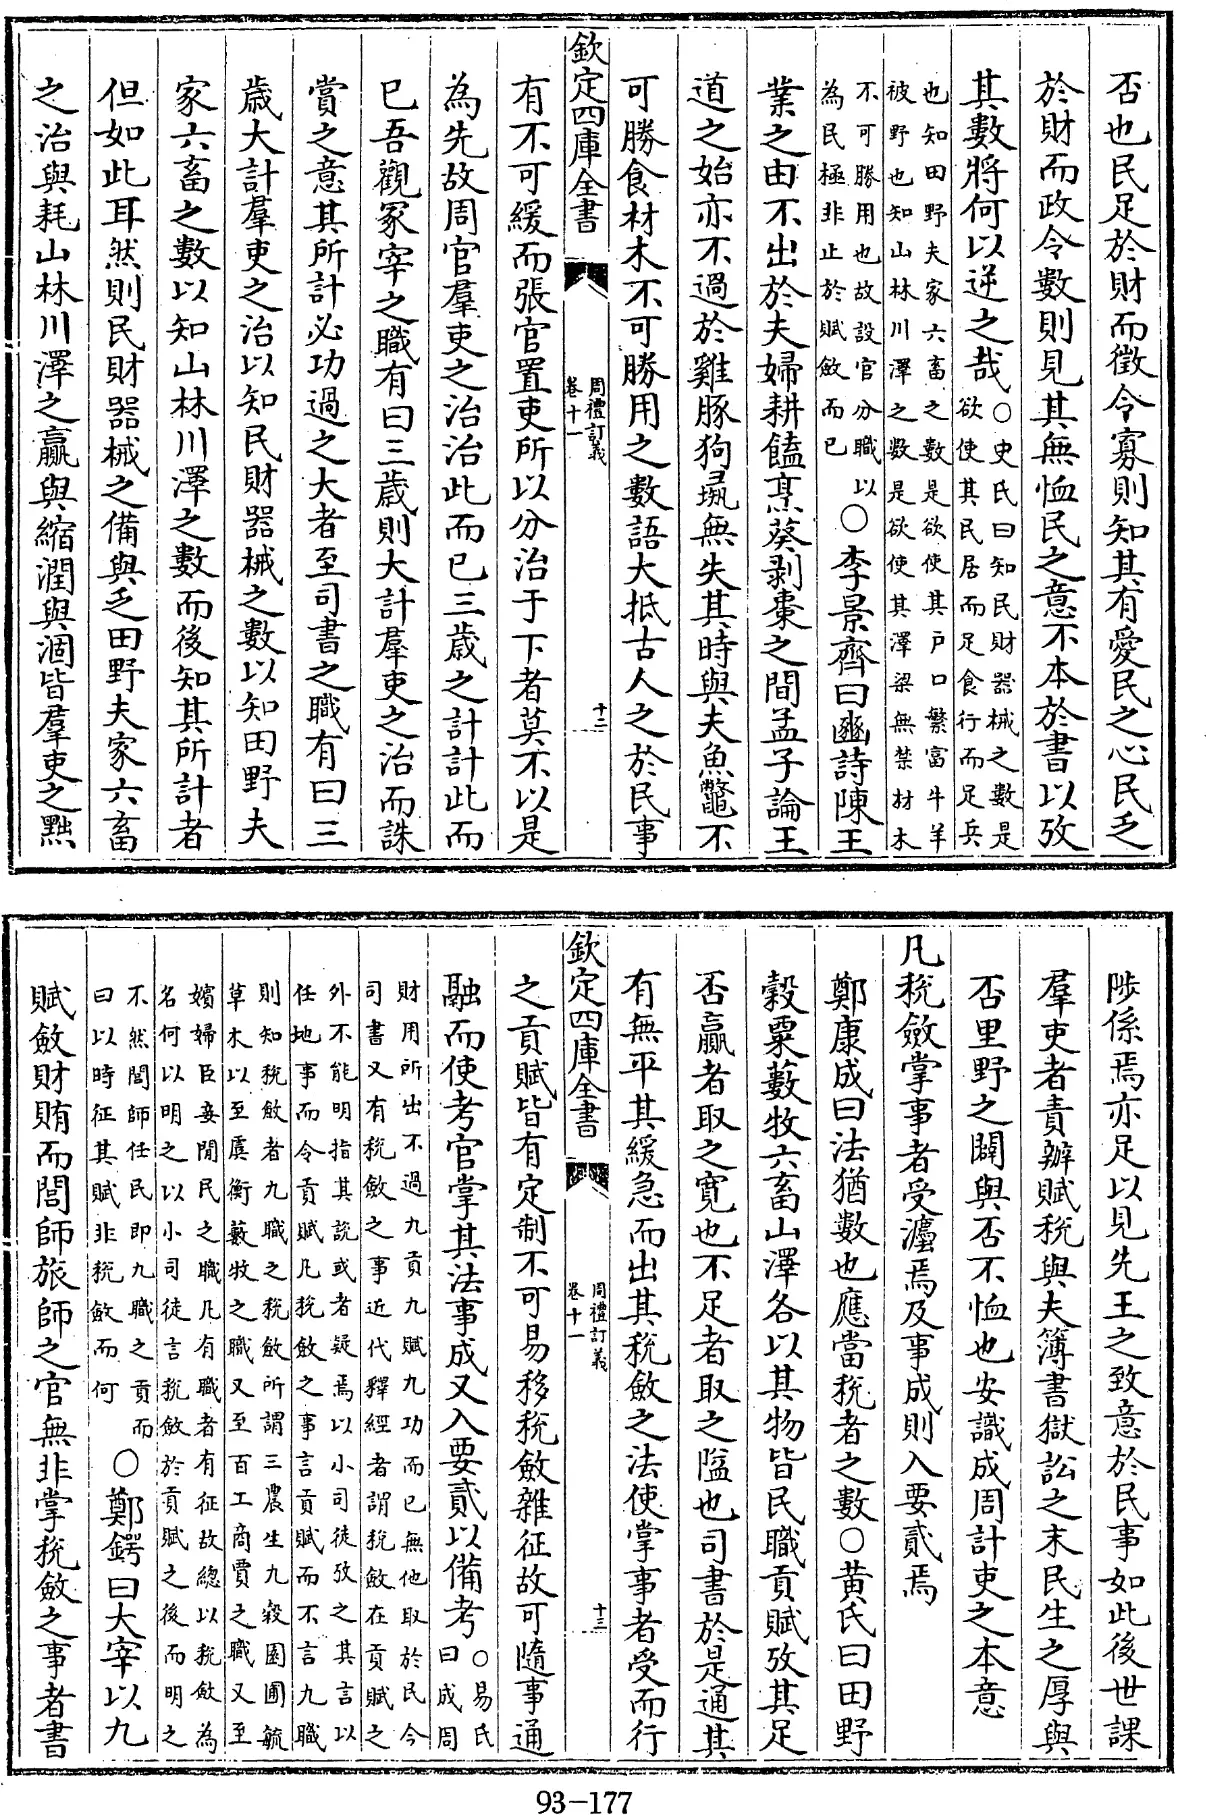 否也民足於財而徵令寡則知其有愛民之心民乏
於財而政令數則見其無恤民之意不本於書以攷
其數將何以逆之哉○史氏曰知民財器械之數是
欲使其民居而足食行而足兵
也知田野夫家六畜之數是欲使其戶口繁富牛羊
被野也知山林川澤之數是欲使其澤梁無禁材木
不可勝用也故設官分職以
為民極非止於賦斂而已
○李景齊曰豳詩陳王
業之由不出於夫婦耕饁烹葵剥棗之間孟子論王
道之始亦不過於雞豚狗彘無失其時與夫魚鼈不
可勝食材木不可勝用之數語大抵古人之於民事
欽定四庫全書
周禮訂義
卷十一
十二
有不可緩而張官置吏所以分治于下者莫不以是
為先故周官羣吏之治治此而已三歳之計計此而
已吾觀冢宰之職有曰三歳則大計羣吏之治而誅
賞之意其所計必功過之大者至司書之職有曰三
歳大計羣吏之治以知民財器械之數以知田野夫
家六畜之數以知山林川澤之數而後知其所計者
但如此耳然則民財器械之備與乏田野夫家六畜
之治與耗山林川澤之贏與縮潤與涸皆羣吏之黜
陟係焉亦足以見先王之致意於民事如此後世課
羣吏者責辦賦稅與夫簿書獄訟之末民生之厚與
否里野之闢與否不恤也安識成周計吏之本意
凡稅斂掌事者受灋焉及事成則入要貳焉
鄭康成曰法猶數也應當稅者之數○黄氏曰田野
穀粟藪牧六畜山澤各以其物皆民職貢賦攷其足
否贏者取之寛也不足者取之隘也司書於是通其
有無平其緩急而出其稅斂之法使掌事者受而行
欽定四庫全書
周禮訂義
卷十一
十三
之貢賦皆有定制不可易移稅斂雜征故可隨事通
融而使考官掌其法事成又入要貳以備考○易氏
曰成周
財用所出不過九貢九賦九功而已無他取於民今
司書又有稅斂之事近代釋經者謂稅斂在貢賦之
外不能明指其說或者疑焉以小司徒攷之其言以
任地事而令貢賦凡稅斂之事言貢賦而不言九職
則知稅斂者九職之稅斂所謂三農生九穀園圃毓
草木以至虞衡藪牧之職又至百工商賈之職又至
嬪婦臣妾閒民之職凡有職者有征故總以稅斂為
名何以明之以小司徒言稅斂於貢賦之後而明之
不然閭師任民即九職之貢而
曰以時征其賦非稅斂而何
○鄭鍔曰大宰以九
賦斂財賄而閭師旅師之官無非掌稅斂之事者書
93-177